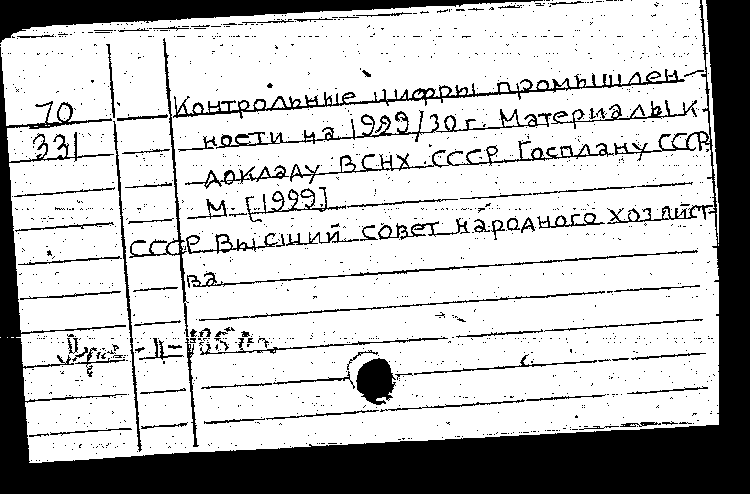 70
331
Контрольные цифры промышлен-
ности на 1929/30 г. Материалы к
докладу ВСНХ СССР Госплану СССР
М. [1929]
СССР Высший совет народного хозяйст-
ва